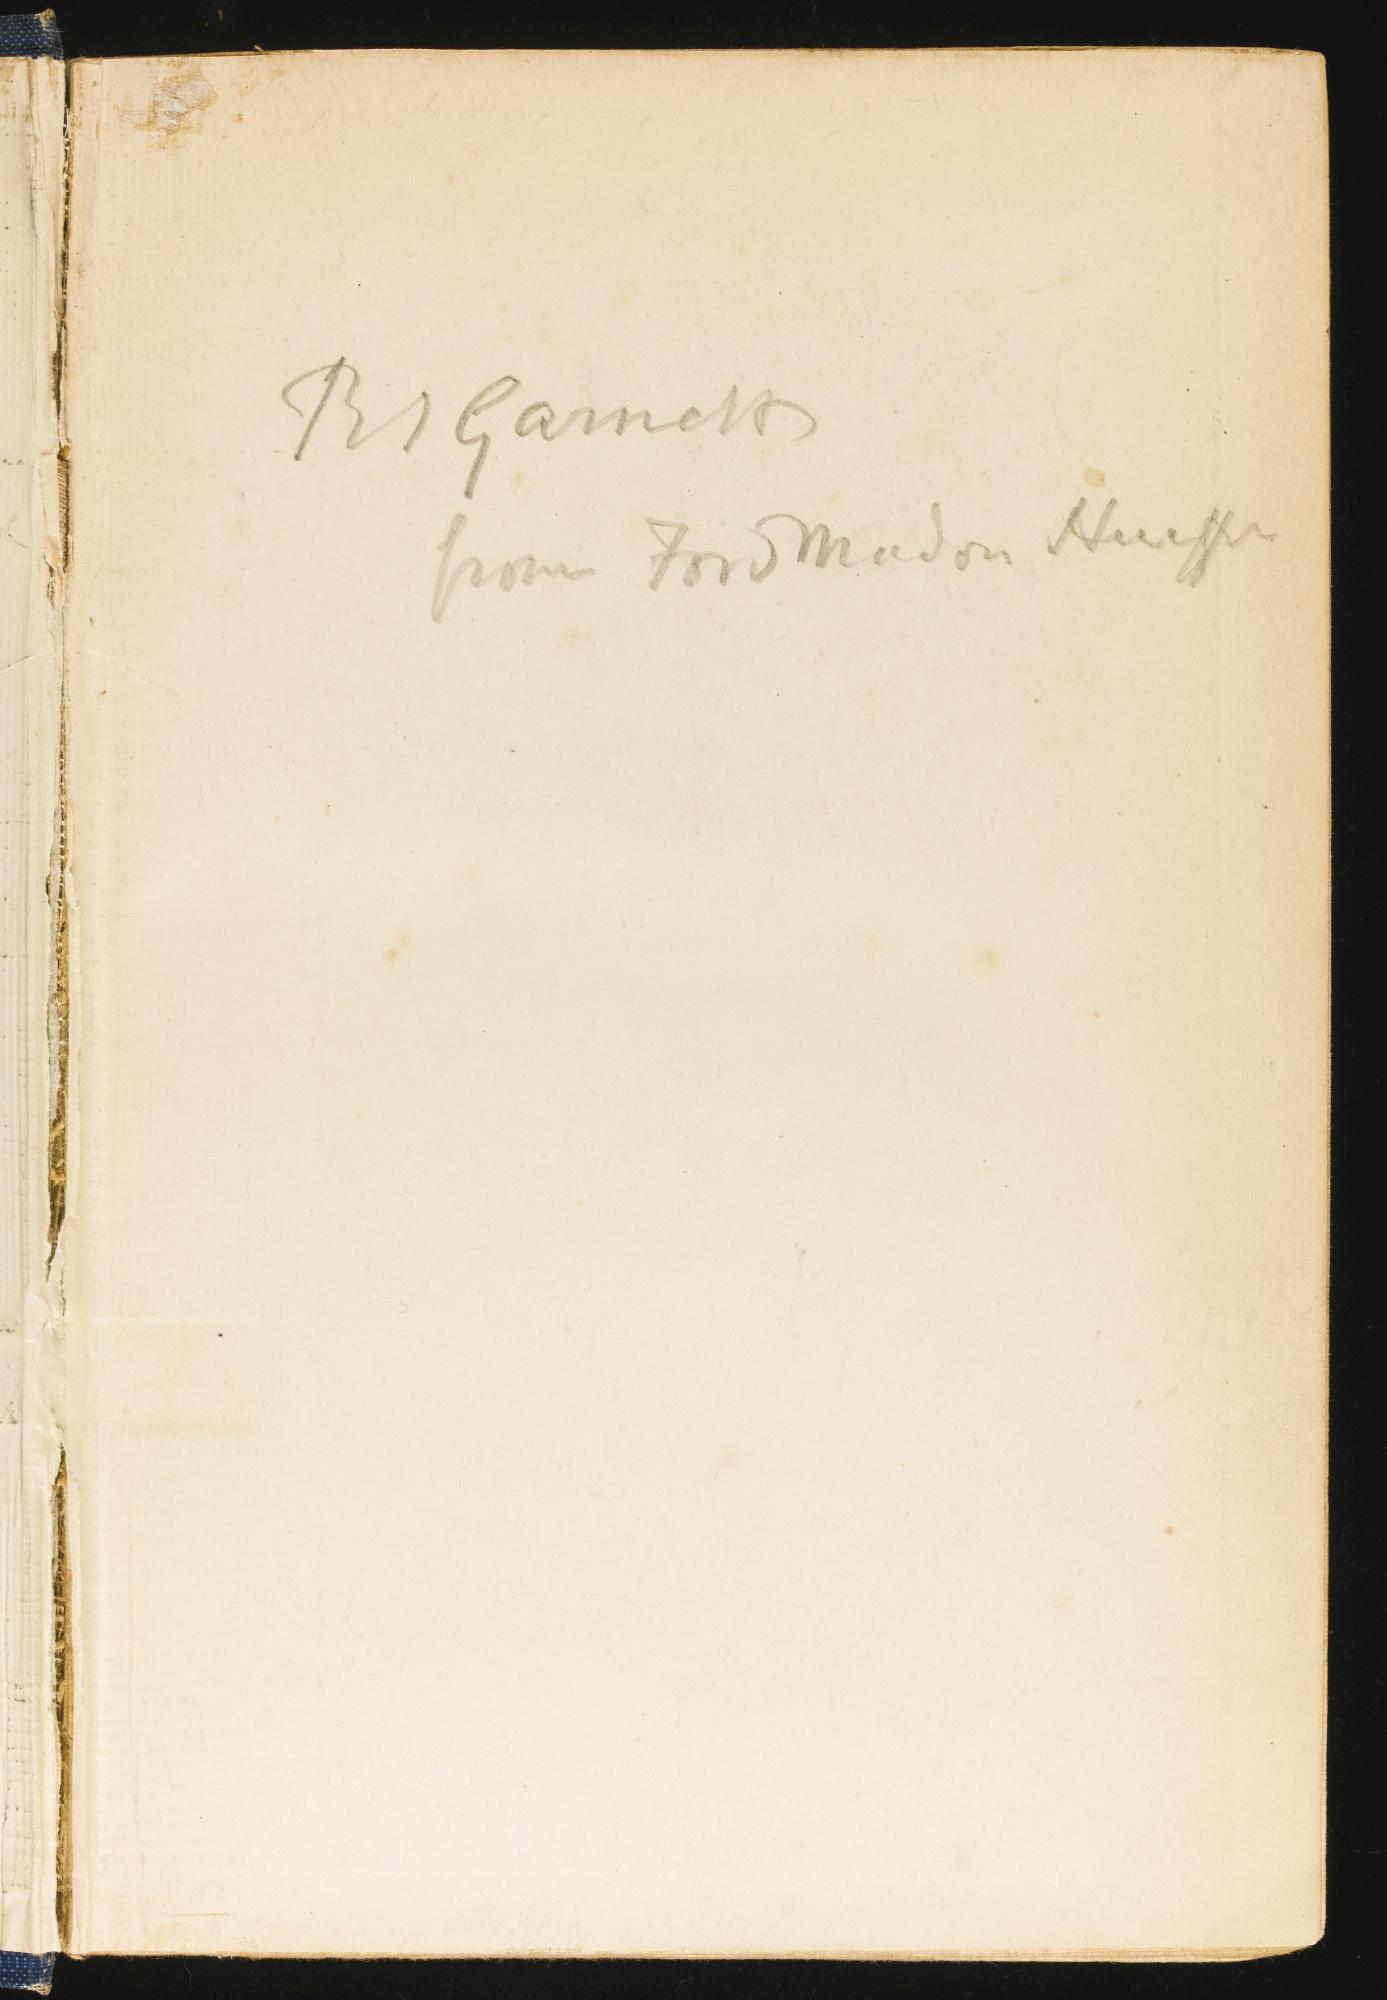 RS Garnett
from Ford Madox Hueffer